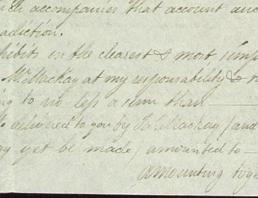 accompanies that account and
adiction.
hibits in the clearest & most simp
McMackay at my responsability &
ing to no less a sum than
delivered to you by Jas McMackay (and
ay yet be made) amounted to
amounting toge